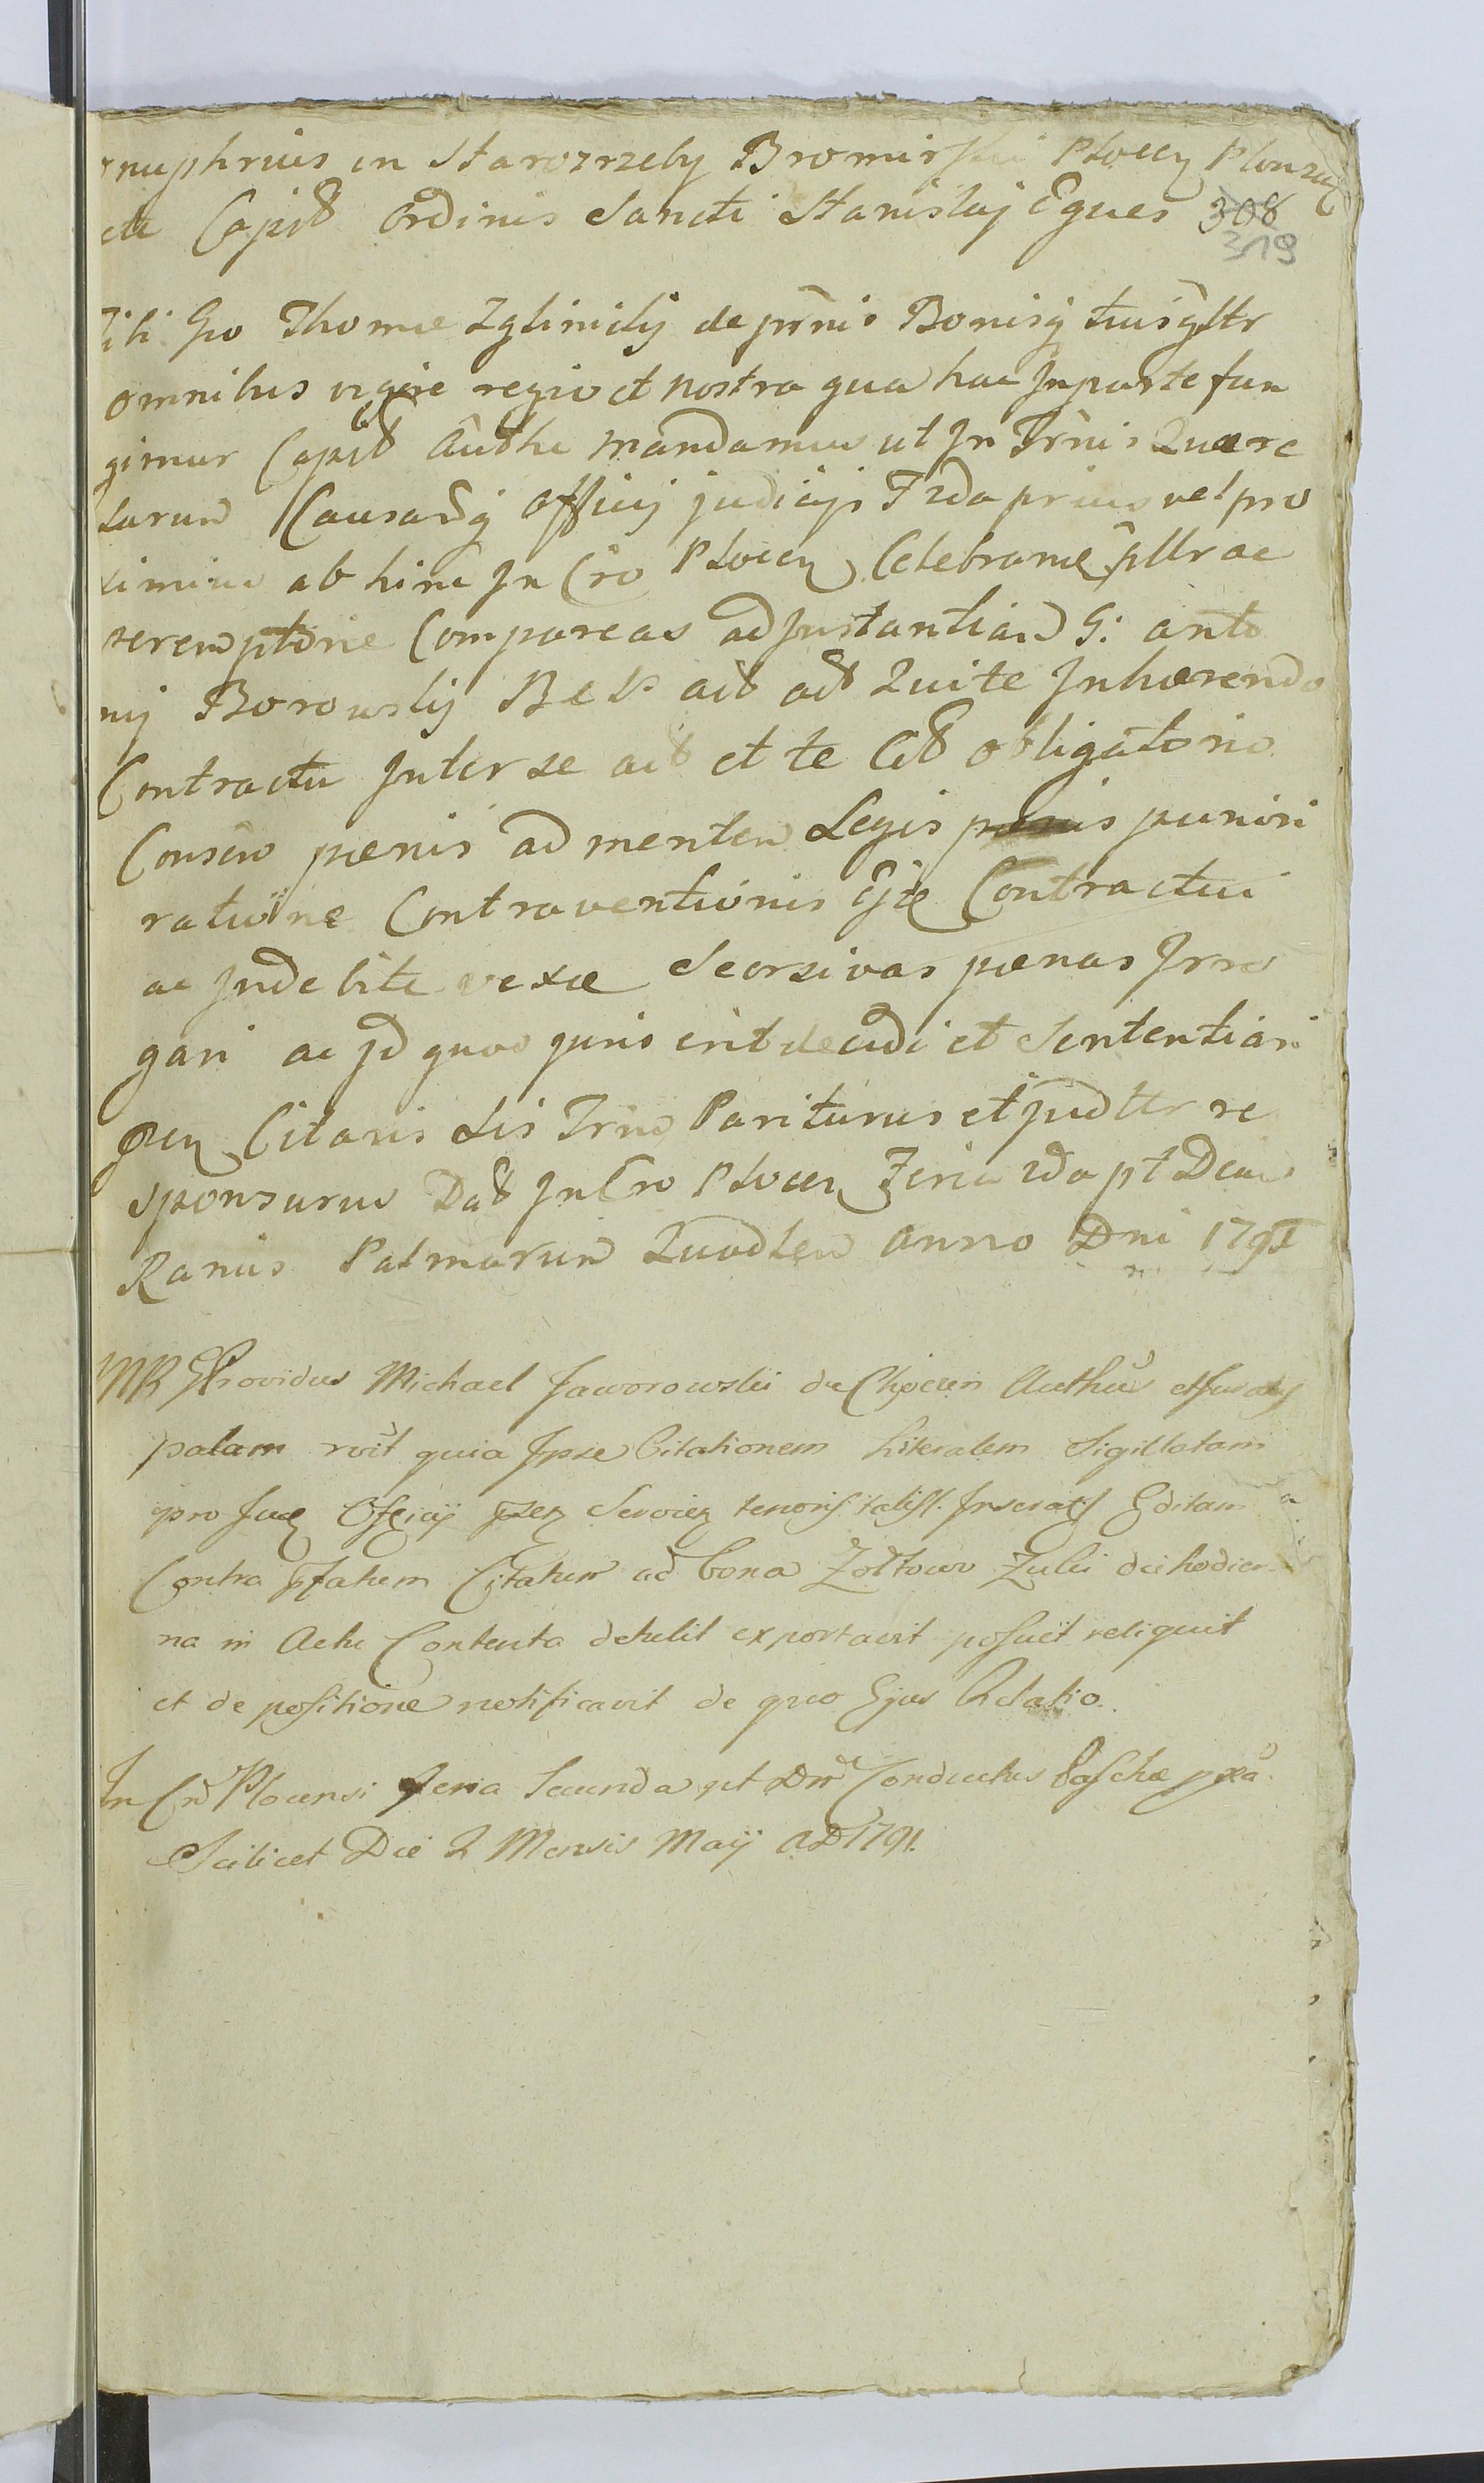 nuphrius in Starozrzeby Bromirski Plocen Plonen
ctu Capit Ordinis Sancti Stanislaj Eques 308
319
Tibi Gso Thomæ Zglinicky de psonis Bonisq tuis gsltr
omnibus vigore regio et nostra qua hac Jn parte fun
gimur Capit Authe mandamus ut Jn Trnis Quære
larum Causarq Officy judicijs Fzda prius vel pro
ximius ab hinc Jn Cro Plocen Celebrame pllr ac
peremptorie Compareas ad Jnstantiam G: anto
nij Borowsky
Contractu Jnter se act et te Cit obligatorio
Conscio pænis ad mentem Legis pænis puniri
rationne Contraventionis Ejde Contractui
ac Jndebite vexæ Seorsivas pænas Jrro
gari ac jd quod juris erit decidi et Sententiari
Pen Citaris Lis Trno Pariturus et judltr re
sponsurus Dat Jn Cro Plocen Feria 2da pt Dcam
Ramis Palmarum Quadlem anno Dni 1791
MR Providus Michael Jaworowski de Chocen Authus et juratus
palam rvit quia Jpse Citationem Literalem Sigillatam
pro Jud Officij psen Servien tenoris talis Jnserais Editam
Contra pfatum Citatum ad bona Zołtowo Zulki die hodier
na in Actu Contenta detulit exportavit posuit reliquit
et de positione notificavit de quo Ejus Relatio.
In Cro Plocensi feria Secunda pt Dni Conductus Paschæ pxa
Scilicet Die 2 Mensis Maij AD 1791.